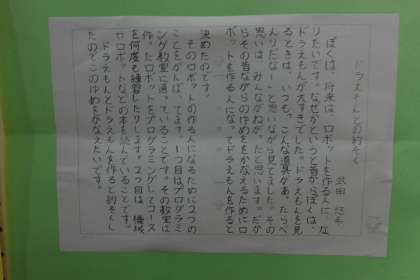 ドラえもんとの約そく
武田 悠手
ぼくは、将来は、ロボットを作る人に、な
りたいです。なぜかというと昔からぼくは、
ドラえもんが大すきでした。ドラえもんを見
るときは、いつも。こんな道具があったらべ
んりだなーと思いながら見てました。その
思いは、みんながねがったと思います。だか
らその昔ながらのゆめををかなえるためにロ
ボットを作る人になってドラえもんを作ると
決めたのです。
そのロボットの作る人になるために2つの
ことをがんばってます。1つ目はプログラミ
ング教室に通っていることです。その教室は
作ったロボットをプログラミングしてコース
を何度も練習したりします。2つ目は、機械
やロボットなどの本を読んでいることです。
ドラえもんとドラえもんを作ると約そくし
たのでこのゆめをかなえたいです。